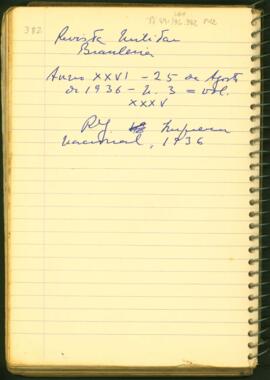 382
Revista Militar
Brasileira
Anno XXVI - 25 de Agosto
de 1936 - N. 3 = vol.
XXXV
Imprensa
Nacional, 1936